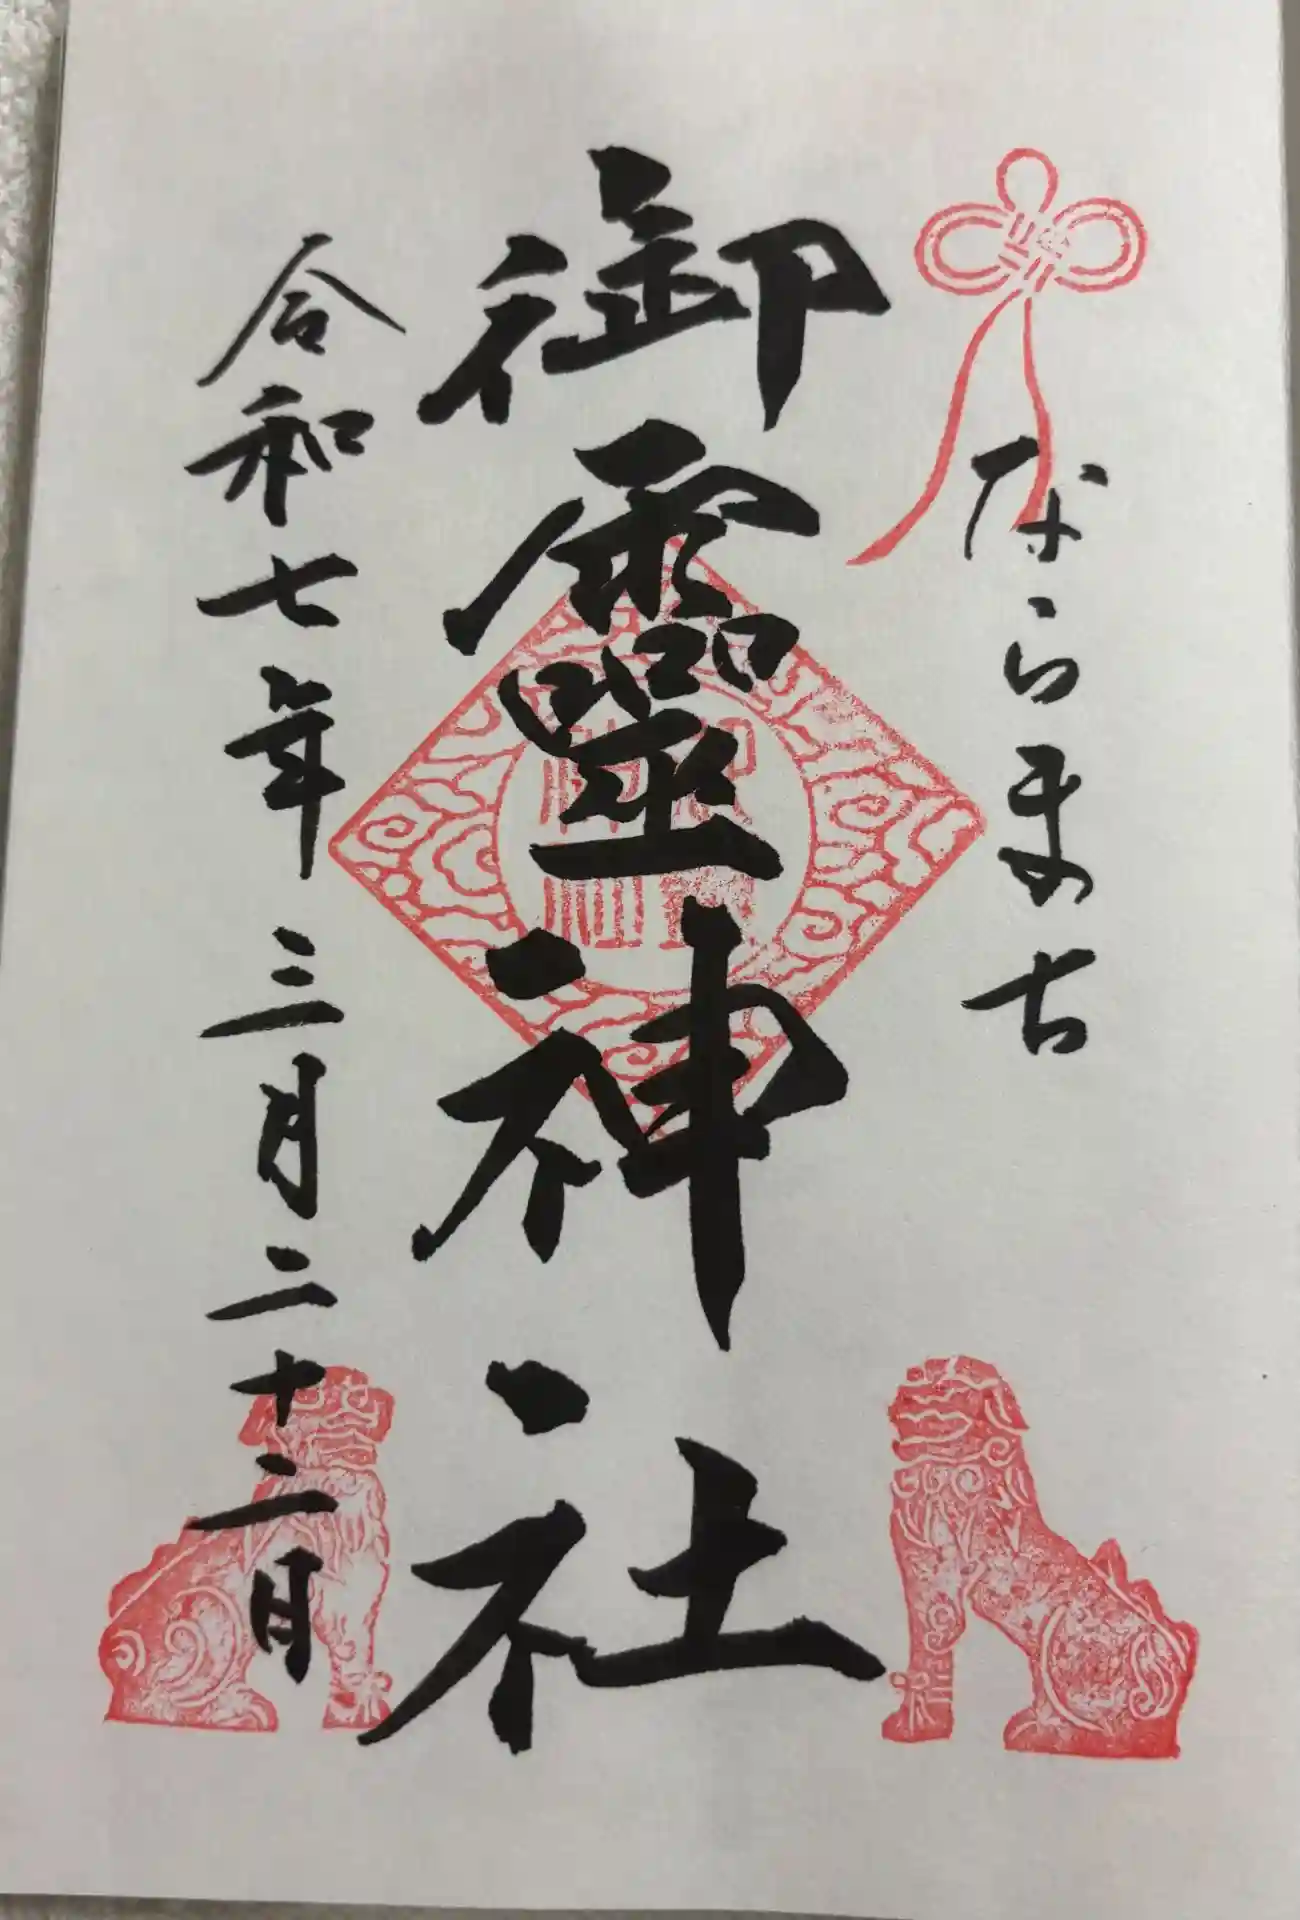 ならまち
御靈神社
令和七年三月二十二日